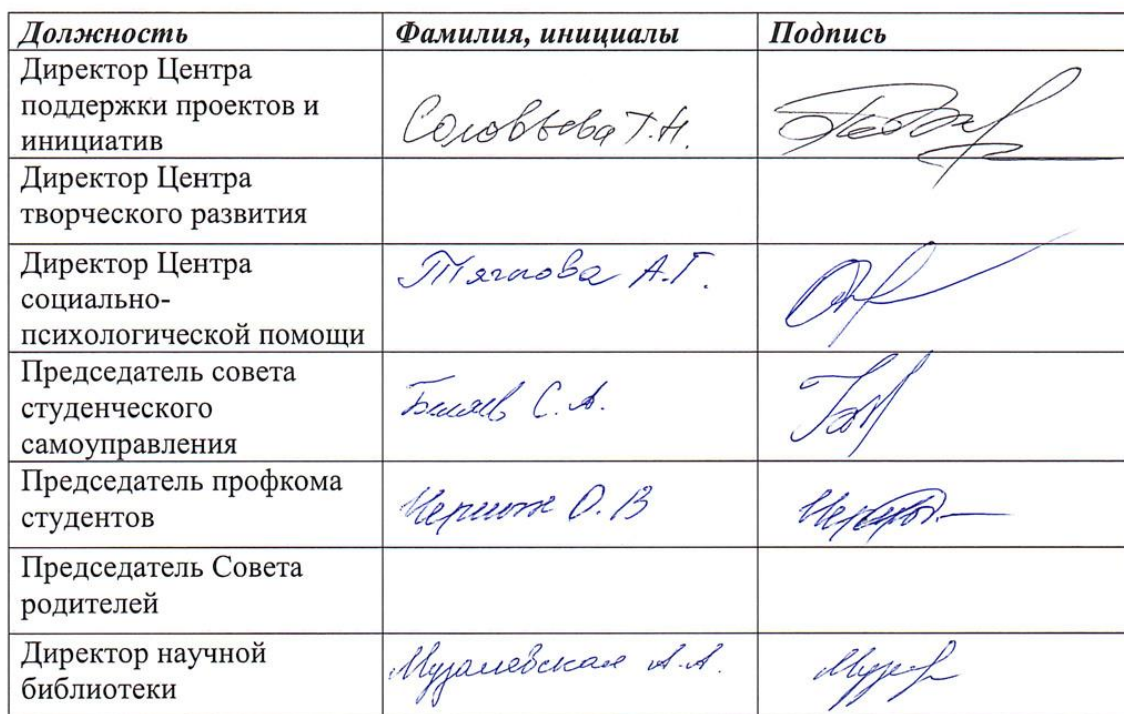 Должность Фамилия, инициалы Подпись
Директор Центра
поддержки проектов и
инициатив Соловьева Т.Н.
Директор Центра
творческого развития
Директор Центра Тяглова А.Г.
социально-
психологической помощи
Председатель совета
студенческого Беляев С.А.
самоуправления
Председатель профкома
студентов О.В
Председатель Совета
родителей
Директор научной Музалевская А.А.
библиотеки